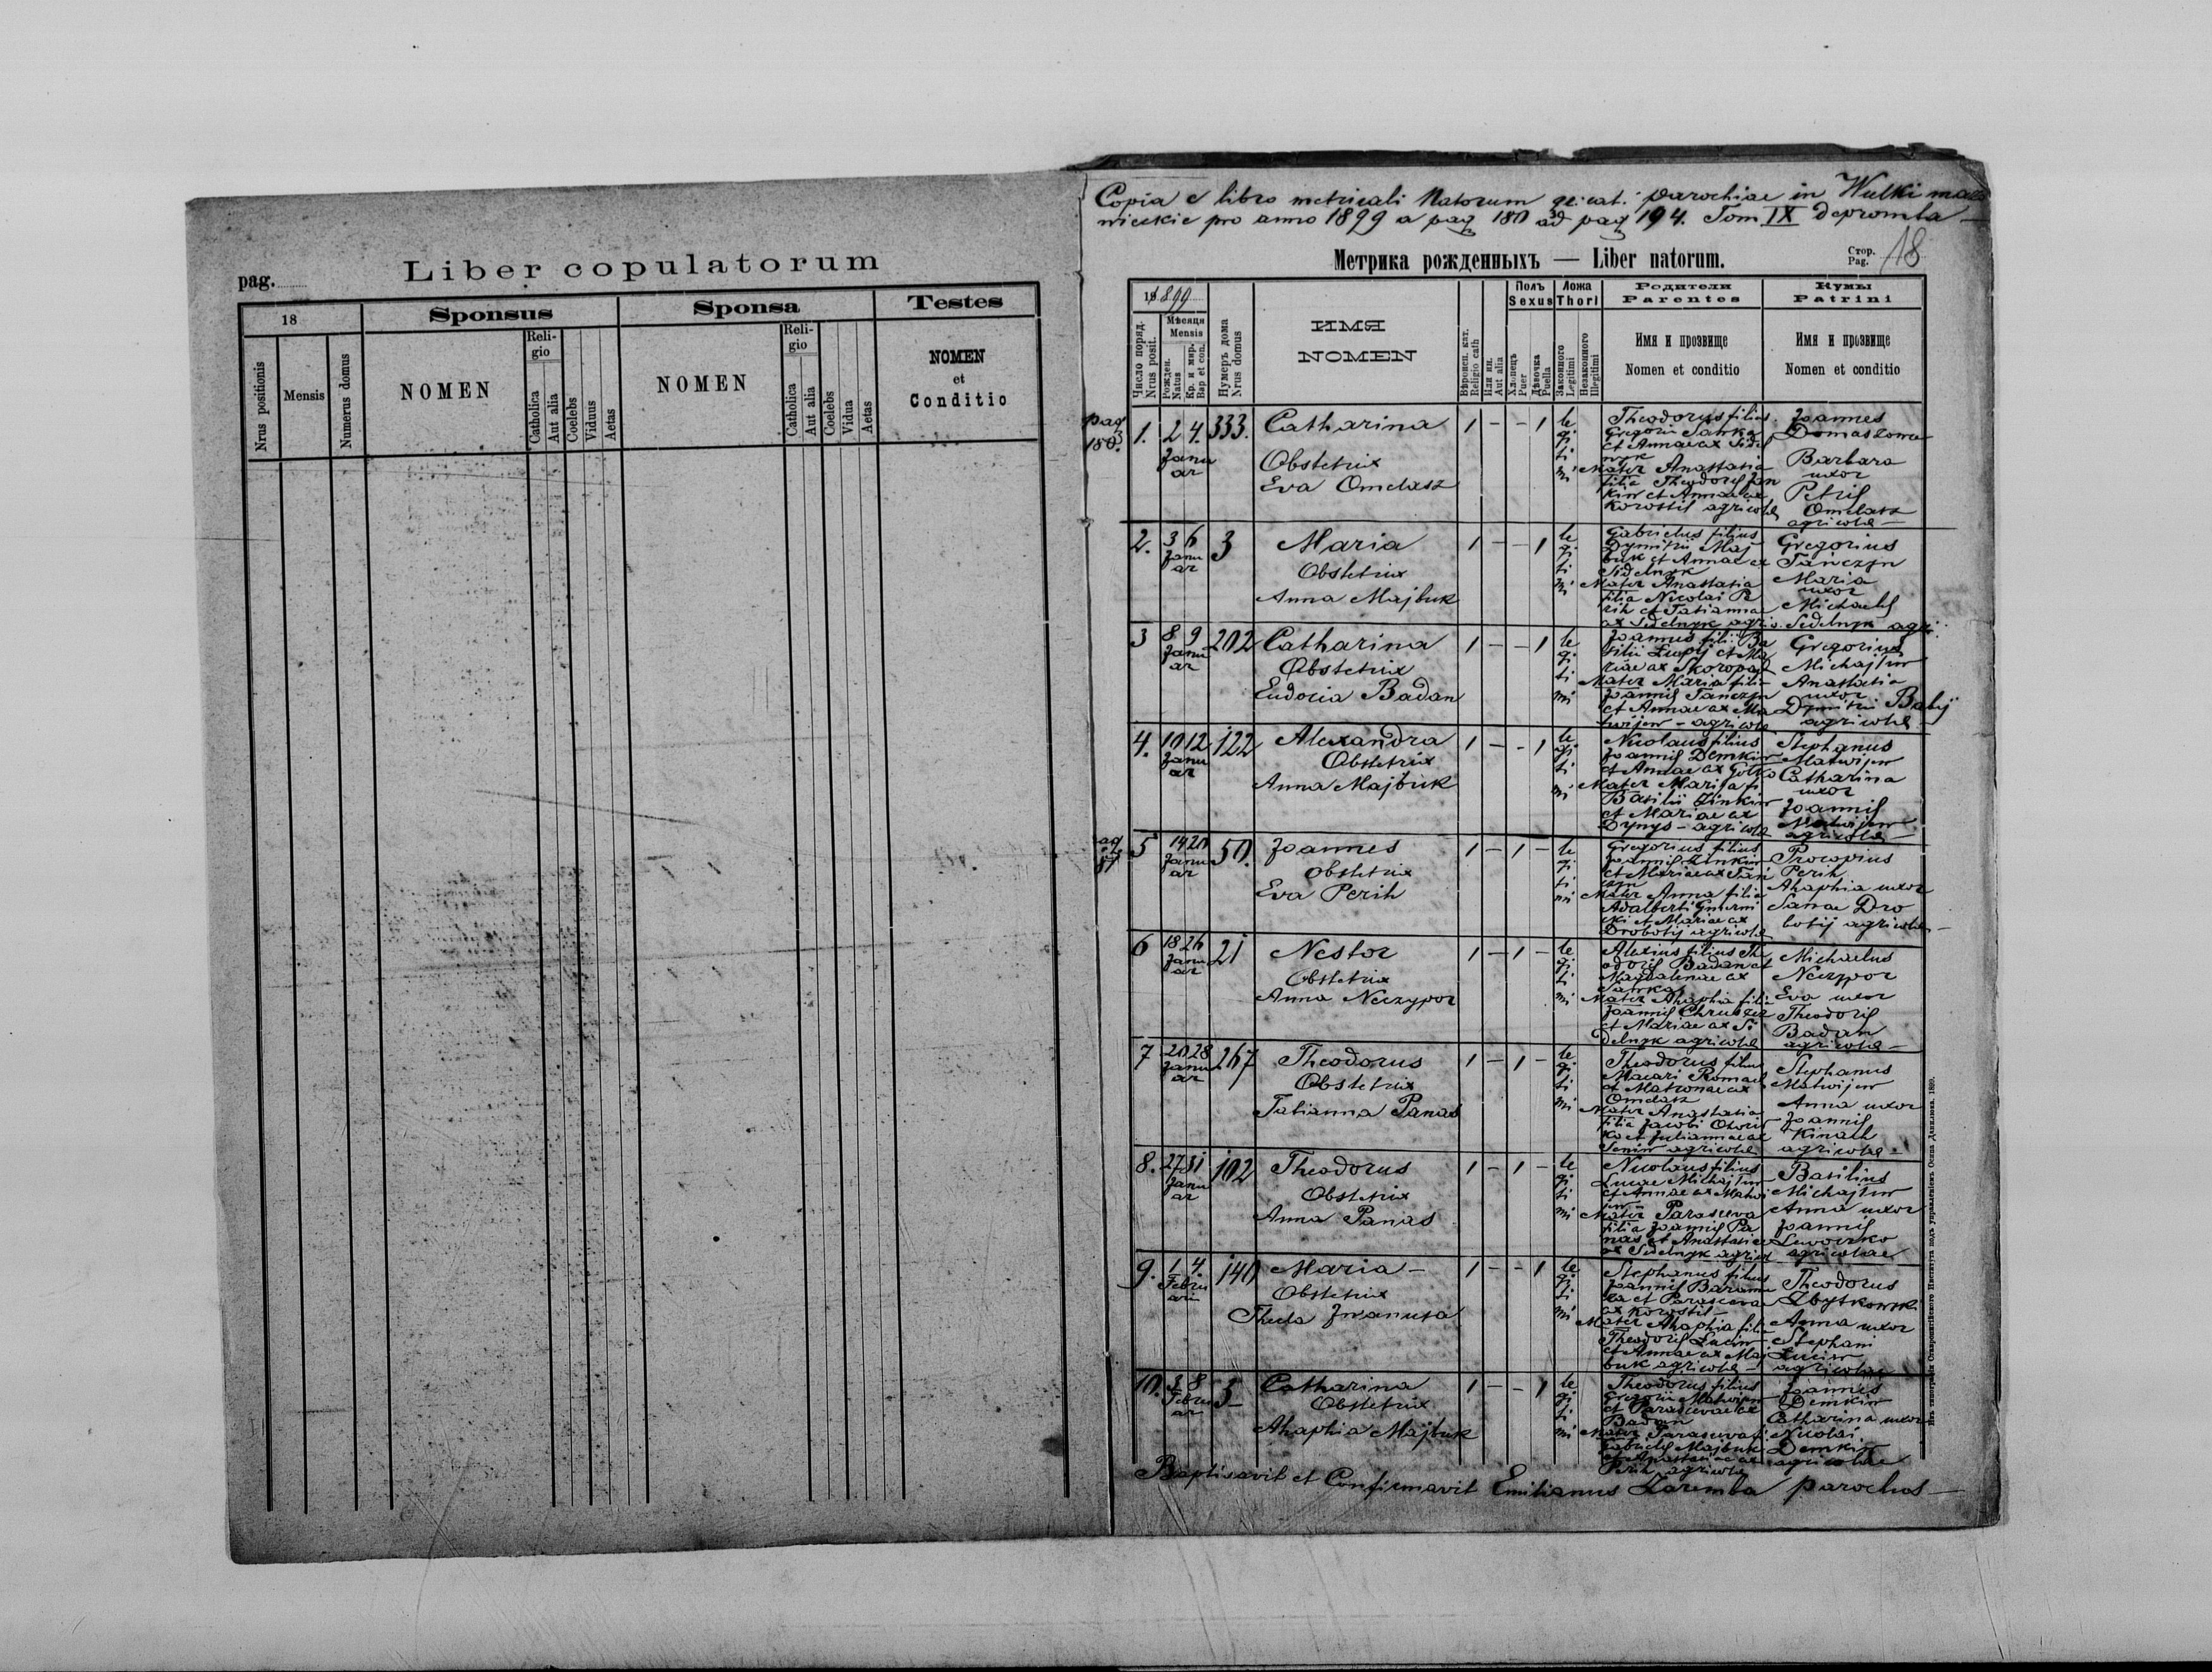 pag.
Liber copulatorum
18
Sponsus
Sponsa
Testes
Nrus positionis
Mensis
Numerus domus
NOMEN
Religio
Catholica
Aut alia
Coelebs
Viduus
Aetas
NOMEN
Religio
Catholica
Aut alia
Coelebs
Vidua
Aetas
NOMEN
et
Conditio
Copia e libro metricali Natorum gr: cat: parochiae in Wulki maz
wieckie pro anno 1899 a pag 180 ad pag 194. Tom IX deprompta —
Метрика рожденныхъ — Liber natorum.
Стор.
Pag.
18
1899
Число поряд.
Nrus posit.
Мѣсяця
Mensis
Рожден.
Natus
Кр. и мир.
Bap et con.
Нумеръ дома
Nrus domus
ИМЯ
NOMEN
Вѣроисп. кат.
Religio cath
Или ин.
Aut alia
Полъ
Sexus
Хлопецъ
Puer
Дѣвочка
Puella
Ложа
Thori
Законного
Legitimi
Незаконного
Illegitimi
Родители
Parentes
Имя и прозвище
Nomen et conditio
Кумы
Patrini
Имя и прозвище
Nomen et conditio
pag
180.
1. 2 4. 333. Catharina 1 - - 1
Januar
Obstetrix
Eva Omelasz
legitimi
Theodorus filius
Gregorii Sanka
et Annae ax Sidel
nyk
Mater Anastasia
filia Theodori Jan
kiw et Annae ax
Korostil agricolae
Joannes
Barbara
uxor
Petri
Omelasz
agricolae —
2. 3 6 3 Maria 1 - - 1
Januar
Obstetrix
Anna Majbuk
legitimi
Gabrielus filius
Dymitrii Maj
buk et Annae ax
Sidelnyk
Mater Anastasia
filia Nicolai Pe
rih et Tatianna
ax Sidelnyk agric.
Gregorius
Tanczyn
Maria
uxor
Michaelis
Sidelnyk agri:
3 8 9 202 Catharina 1 - - 1
Januar
Obstetrix
Eudocia Badan
legitimi
Joannes fili: Ba
silii Lupij et Ma
riae ax Skoropad
Mater Maria filia
Joannis Tanczyn
et Annae ax Ma
twijew - agricolae
Gregorius
Michajliw
Anastasia
uxor
Dymitrii Babij
agricolae
4. 10 12 122 Alexandra 1 - - 1
Januar
Obstetrix
Anna Majbuk
legitimi
Nicolaus filius
Joannis Demkiw
Mater Maria fi
Basilii Zinkiw
et Mariae ax
Dynys - agricolae
Stephanus
Matwijew
Catharina
uxor
Joannis
Matwijew
agricolae —
5 14 20 50. Joannes 1 - 1 -
Januar
Obstetrix
Eva Perih
legitimi
Gregorius filius
Joannis Zinkiw
et Mariae ax Tan
czyn
Mater Anna filia
Adalberti
et Mariae ax
Drobotij agricolae
Procopius
Perih
Ahaphia uxor
Sanae Dro
botij agricolae —
6 18 26 21 Nestor 1 - 1 -
Januar
Obstetrix
Anna Neczypor
legitimi
Alexius filius The
odori Badan et
Magdalenae ax
Sanka
Mater Ahaphia filia
Joannis
et Mariae ax Si
delnyk agricolae
Michaelus
Neczypor
Eva uxor
Theodori
Badan
agricolae —
7 20 28 267 Theodorus 1 - 1 -
Januar
Obstetrix
Tatianna Panas
legitimi
Theodorus filius
Macari Romach
et Matronae ax
Omelasz
Mater Anastasia
filia Jacobi
ko et Juliannae ax
Seniw agricolae
Stephanus
Matwijew
Anna uxor
Joannis
Kinach
agricolae -
8. 27 31 102 Theodorus 1 - 1 -
Januar
Obstetrix
Anna Panas
legitimi
Nicolaus filius
Lucae Michajliw
et Annae ax Matwi
jew
Mater Parasceva
filia Joannis Pa
nas et Anastasiae
ax Sidelnyk agricol
Basilius
Michajliw
Anna uxor
Joannis
agricolae
9. 1 4 140 Maria — 1 - - 1
Februarii
Obstetrix
Thecla Iwanusa
legitimi
Stephanus filius
et Parasceva
ax Korostil —
Mater Ahaphia filia
Theodori Luciw
et Annae ax Maj
buk agricolae —
Theodorus
Anna uxor
Stephani
Luciw
agricolae
10. 3 8 5 Catharina 1 - - 1
Februar
Obstetrix
Ahaphia Majbuk
legitimi
Theodorus filius
Gregorii Matwijew
et Parascevae ax
Badan
Mater Parasceva fi:
Gabrielis Majbuk
et Anastasiae ax
Perih agricolae
Joannes
Demkiw
Catharina uxor
Nicolai
Demkiw
agricolae
Baptisavit et Confirmavit Emilianus Zaremba parochus —